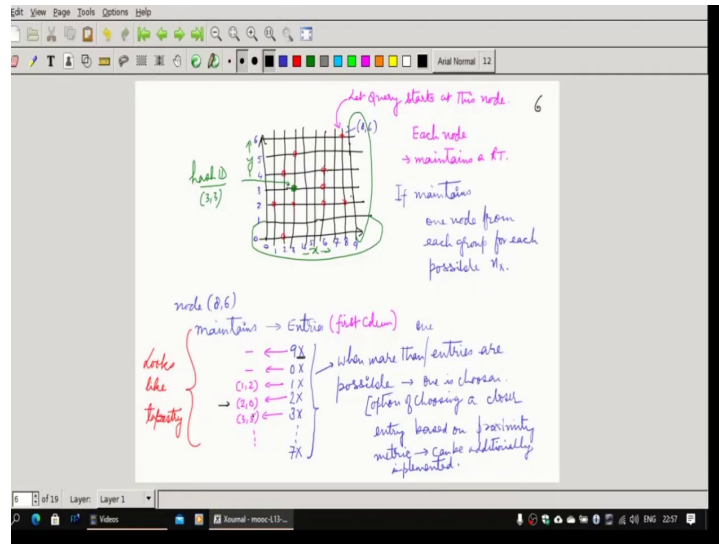 Edit View Page Tools Options Help
Arial Normal 12
Let Query starts at this node.
6
(8,6)
Each node
→ maintains a RT.
hash ID
(3,3)
y
6
5
4
3
2
1
0
0 1 2 3 4 5 6 7 8 9
x
If maintains
one node from
each group for each
possible nx.
node (8,6)
maintains → Entries (first Colum)
Looks
like
tapastry
- ← 9X
- ← 0X
(1,2) ← 1X
→ (2,0) ← 2X
(3,5) ← 3X
7X
one
when more than / entries are
possible → one is choosen.
[option of choosing a closer
entry based on proximity
metric → can be additionally
inplemented.
6 of 19 Layer: Layer 1
Videos
Xournal - mooc-L13-...
ENG 22:57